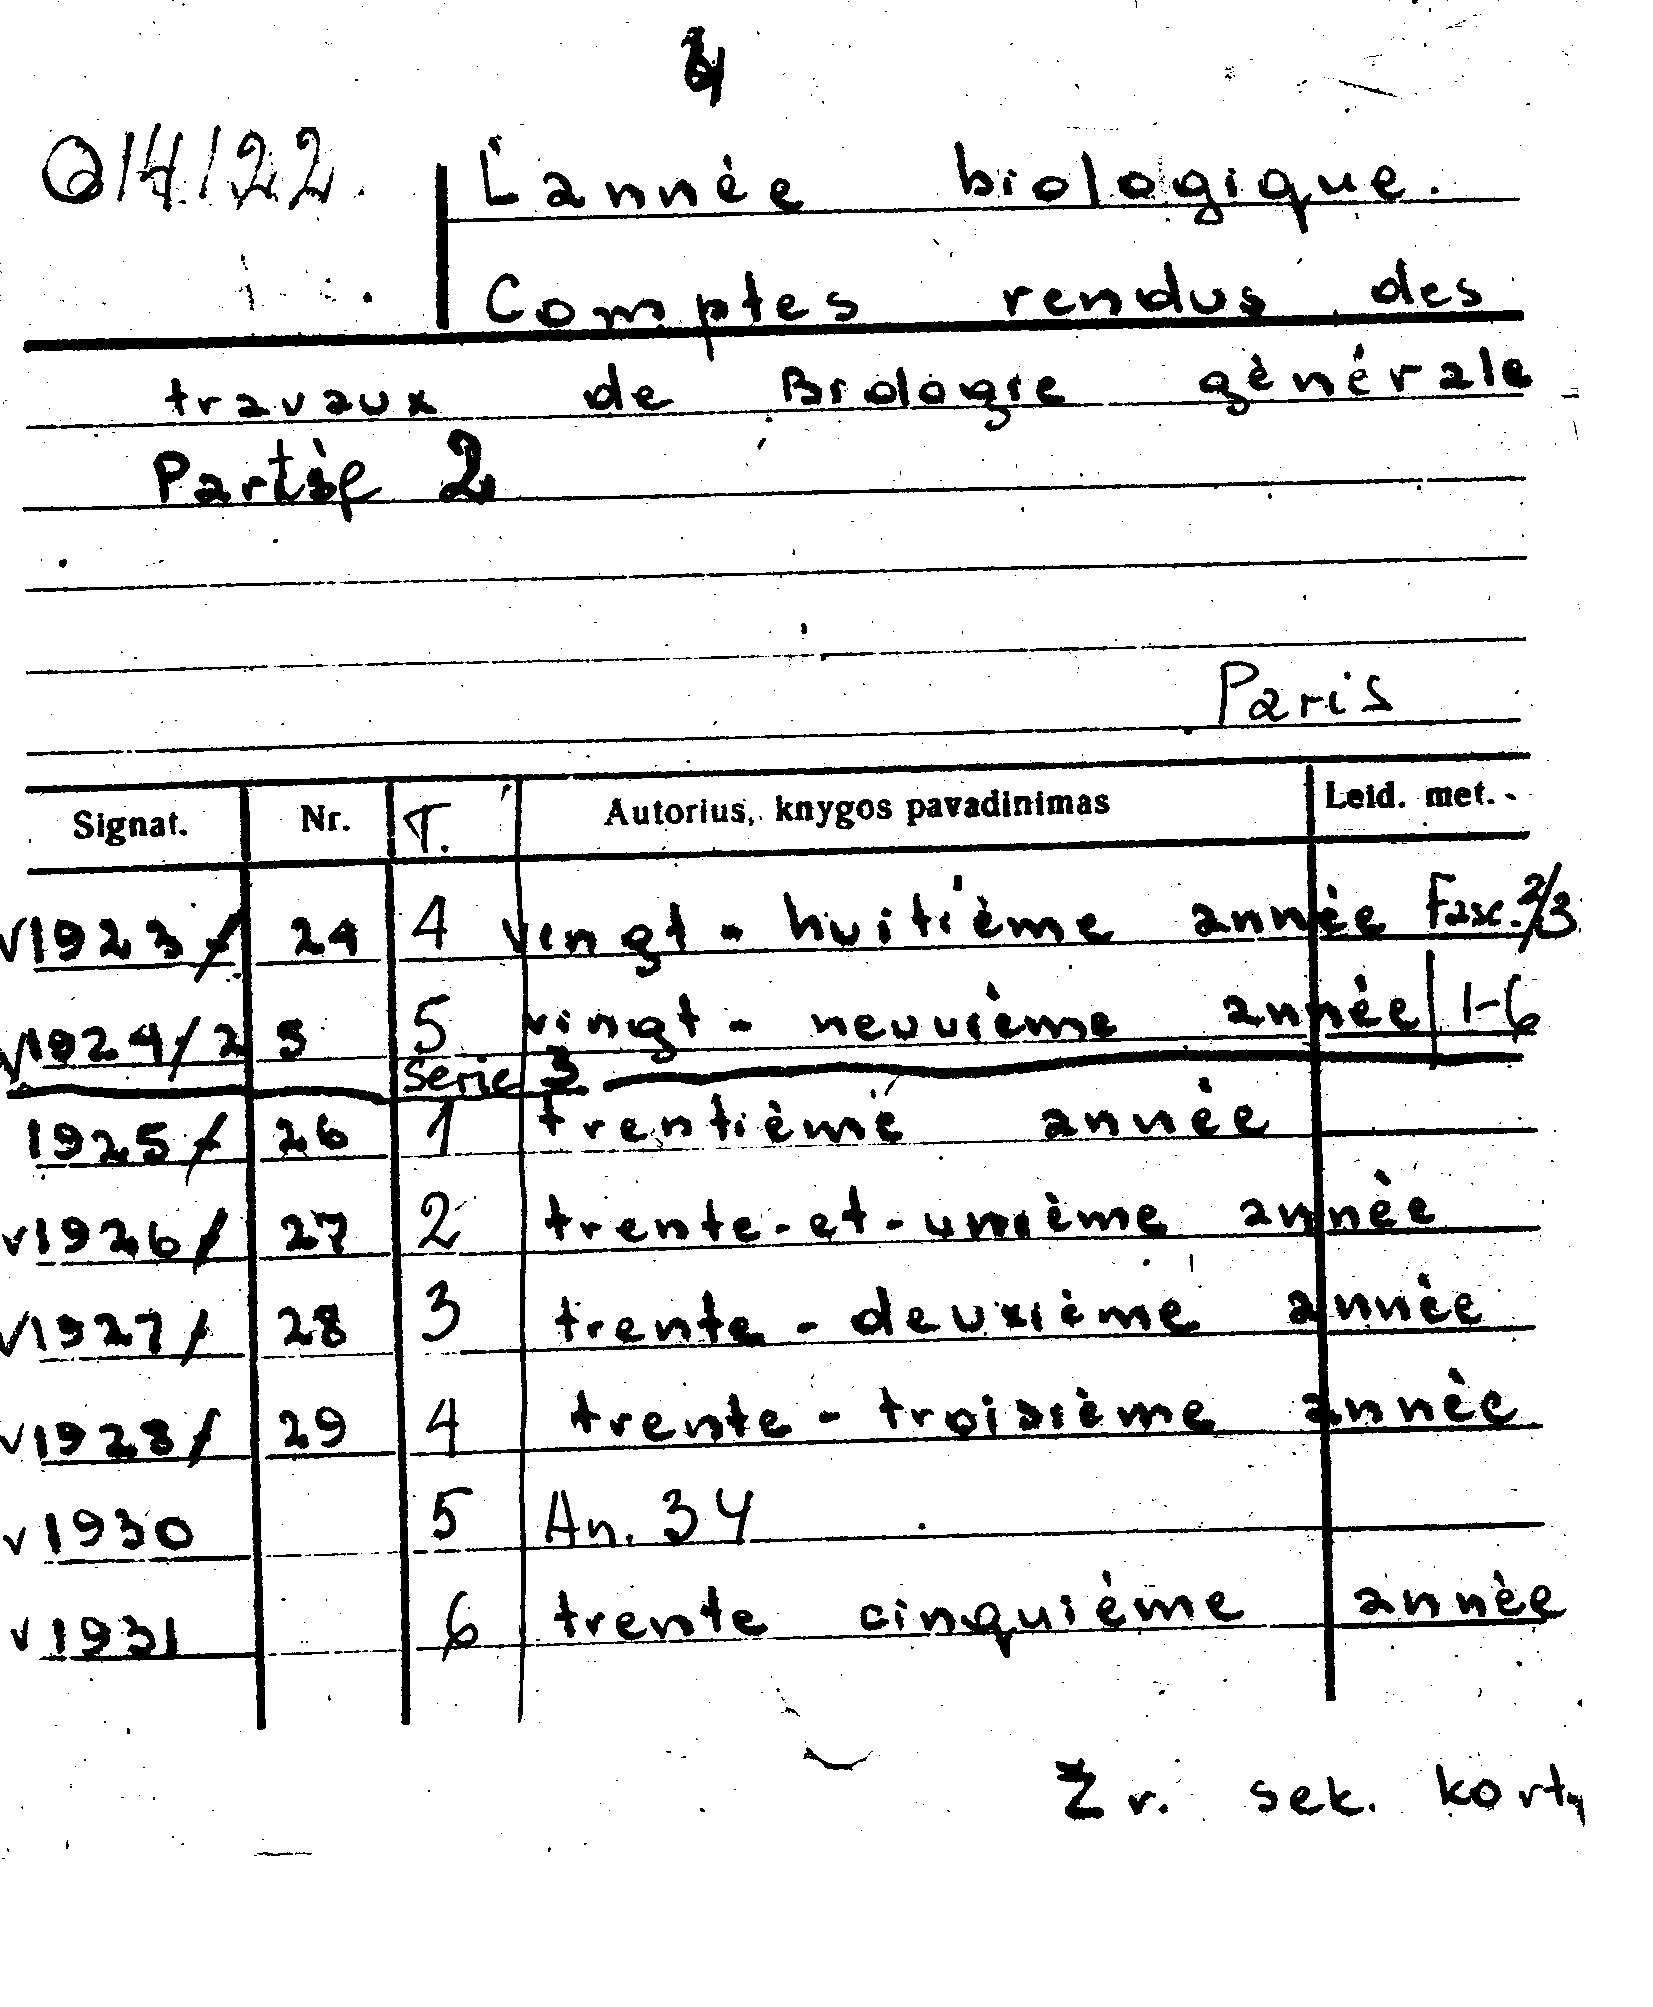 4
Q14/22. L'année biologique.
Comptes rendus des
travaux de Biologie générale
Partie 2
Paris
Signat. Nr. T. Autorius, knygos pavadinimas Leid. met.
V 1923/ 24 4 vingt-huitième année Fasc. 2/3
V 1924/25 5 vingt-neuvième année | 1-6
Serie 3
1925/ 26 1 trentième année
v 1926/ 27 2 trente-et-unième année
V 1927/ 28 3 trente-deuxième année
v 1928/ 29 4 trente-troisième année
v 1930 5 An. 34
v 1931 6 trente cinquième année
Žr. sek. kort.